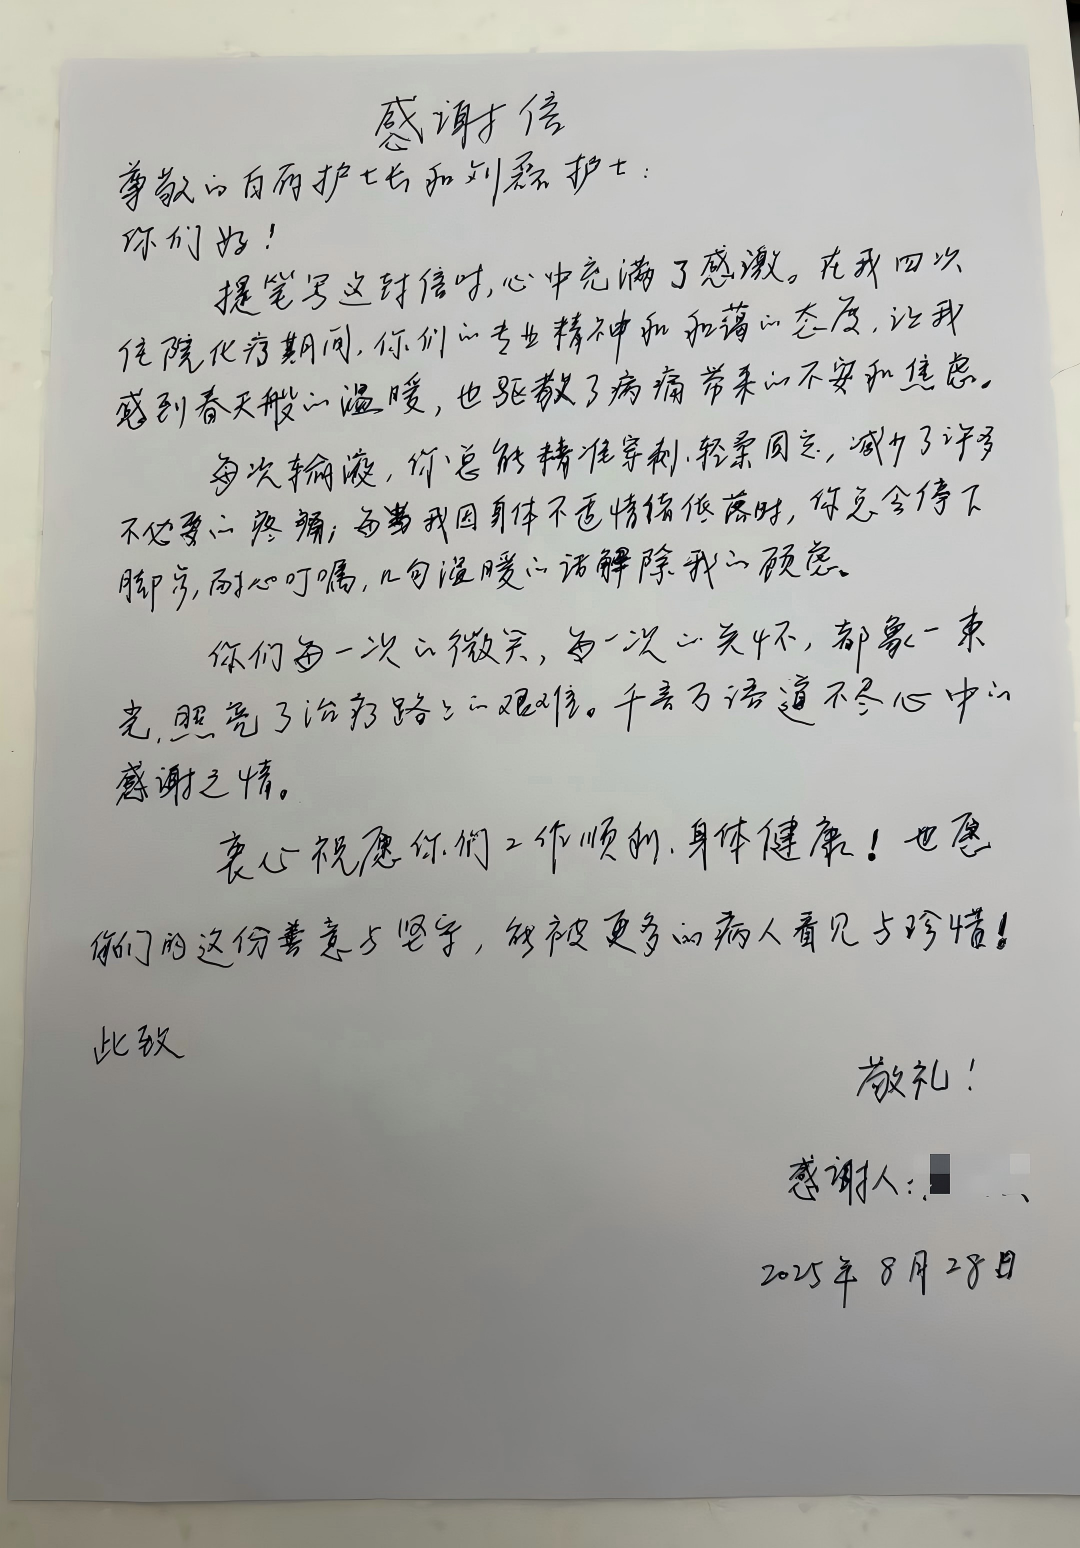 感谢信
尊敬的白府护士长和刘磊护士：
你们好！
提笔写这封信时，心中充满了感激。在我四次
住院化疗期间，你们的专业精神和和蔼的态度，让我
感到春天般的温暖，也驱散了病痛带来的不安和焦虑。
每次输液，你总能精准穿刺、轻柔固定，减少了许多
不必要的疼痛；每当我因身体不适情绪低落时，你总会停下
脚步，耐心叮嘱，几句温暖的话解除我的顾虑。
你们每一次的微笑，每一次的关怀，都象一束
光，照亮了治疗路上的艰难。千言万语道不尽心中的
感谢之情。
衷心祝愿你们工作顺利、身体健康！也愿
你们的这份善意与坚守，能被更多的病人看见与珍惜！
此致
敬礼！
感谢人：
2025年8月28日